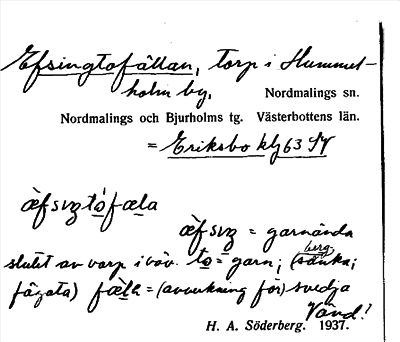 Efsingtofällan, torp i Hummel-
holm by,
Nordmalings sn.
Nordmalings och Bjurholms tg. Västerbottens län.
= Eriksbo klg 63 SV
æ̀fsıŋtófæla
æ̀fsıŋ = garnända
slutet av varp i väv. to = garn; (sänka;
berg,
fågata) fælh = (avverkning för) svedja
Vänd!
H. A. Söderberg. 1937.